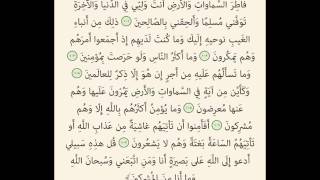 فَاطِرَ السَّمَاوَاتِ وَالْأَرْضِ أَنتَ وَلِيِّي فِي الدُّنْيَا وَالْآخِرَةِ
تَوَفَّنِي مُسْلِمًا وَأَلْحِقْنِي بِالصَّالِحِينَ ذَٰلِكَ مِنْ أَنبَاءِ
الْغَيْبِ نُوحِيهِ إِلَيْكَ وَمَا كُنتَ لَدَيْهِمْ إِذْ أَجْمَعُوا أَمْرَهُمْ
وَهُمْ يَمْكُرُونَ وَمَا أَكْثَرُ النَّاسِ وَلَوْ حَرَصْتَ بِمُؤْمِنِينَ
وَمَا تَسْأَلُهُمْ عَلَيْهِ مِنْ أَجْرٍ إِنْ هُوَ إِلَّا ذِكْرٌ لِلْعَالَمِينَ
وَكَأَيِّن مِنْ آيَةٍ فِي السَّمَاوَاتِ وَالْأَرْضِ يَمُرُّونَ عَلَيْهَا وَهُمْ
عَنْهَا مُعْرِضُونَ وَمَا يُؤْمِنُ أَكْثَرُهُم بِاللَّهِ إِلَّا وَهُم
مُشْرِكُونَ أَفَأَمِنُوا أَن تَأْتِيَهُمْ غَاشِيَةٌ مِنْ عَذَابِ اللَّهِ أَوْ
تَأْتِيَهُمُ السَّاعَةُ بَغْتَةً وَهُمْ لَا يَشْعُرُونَ قُلْ هَٰذِهِ سَبِيلِي
أَدْعُو إِلَى اللَّهِ عَلَىٰ بَصِيرَةٍ أَنَا وَمَنِ اتَّبَعَنِي وَسُبْحَانَ اللَّهِ
وَمَا أَنَا مِنَ الْمُشْرِكِينَ